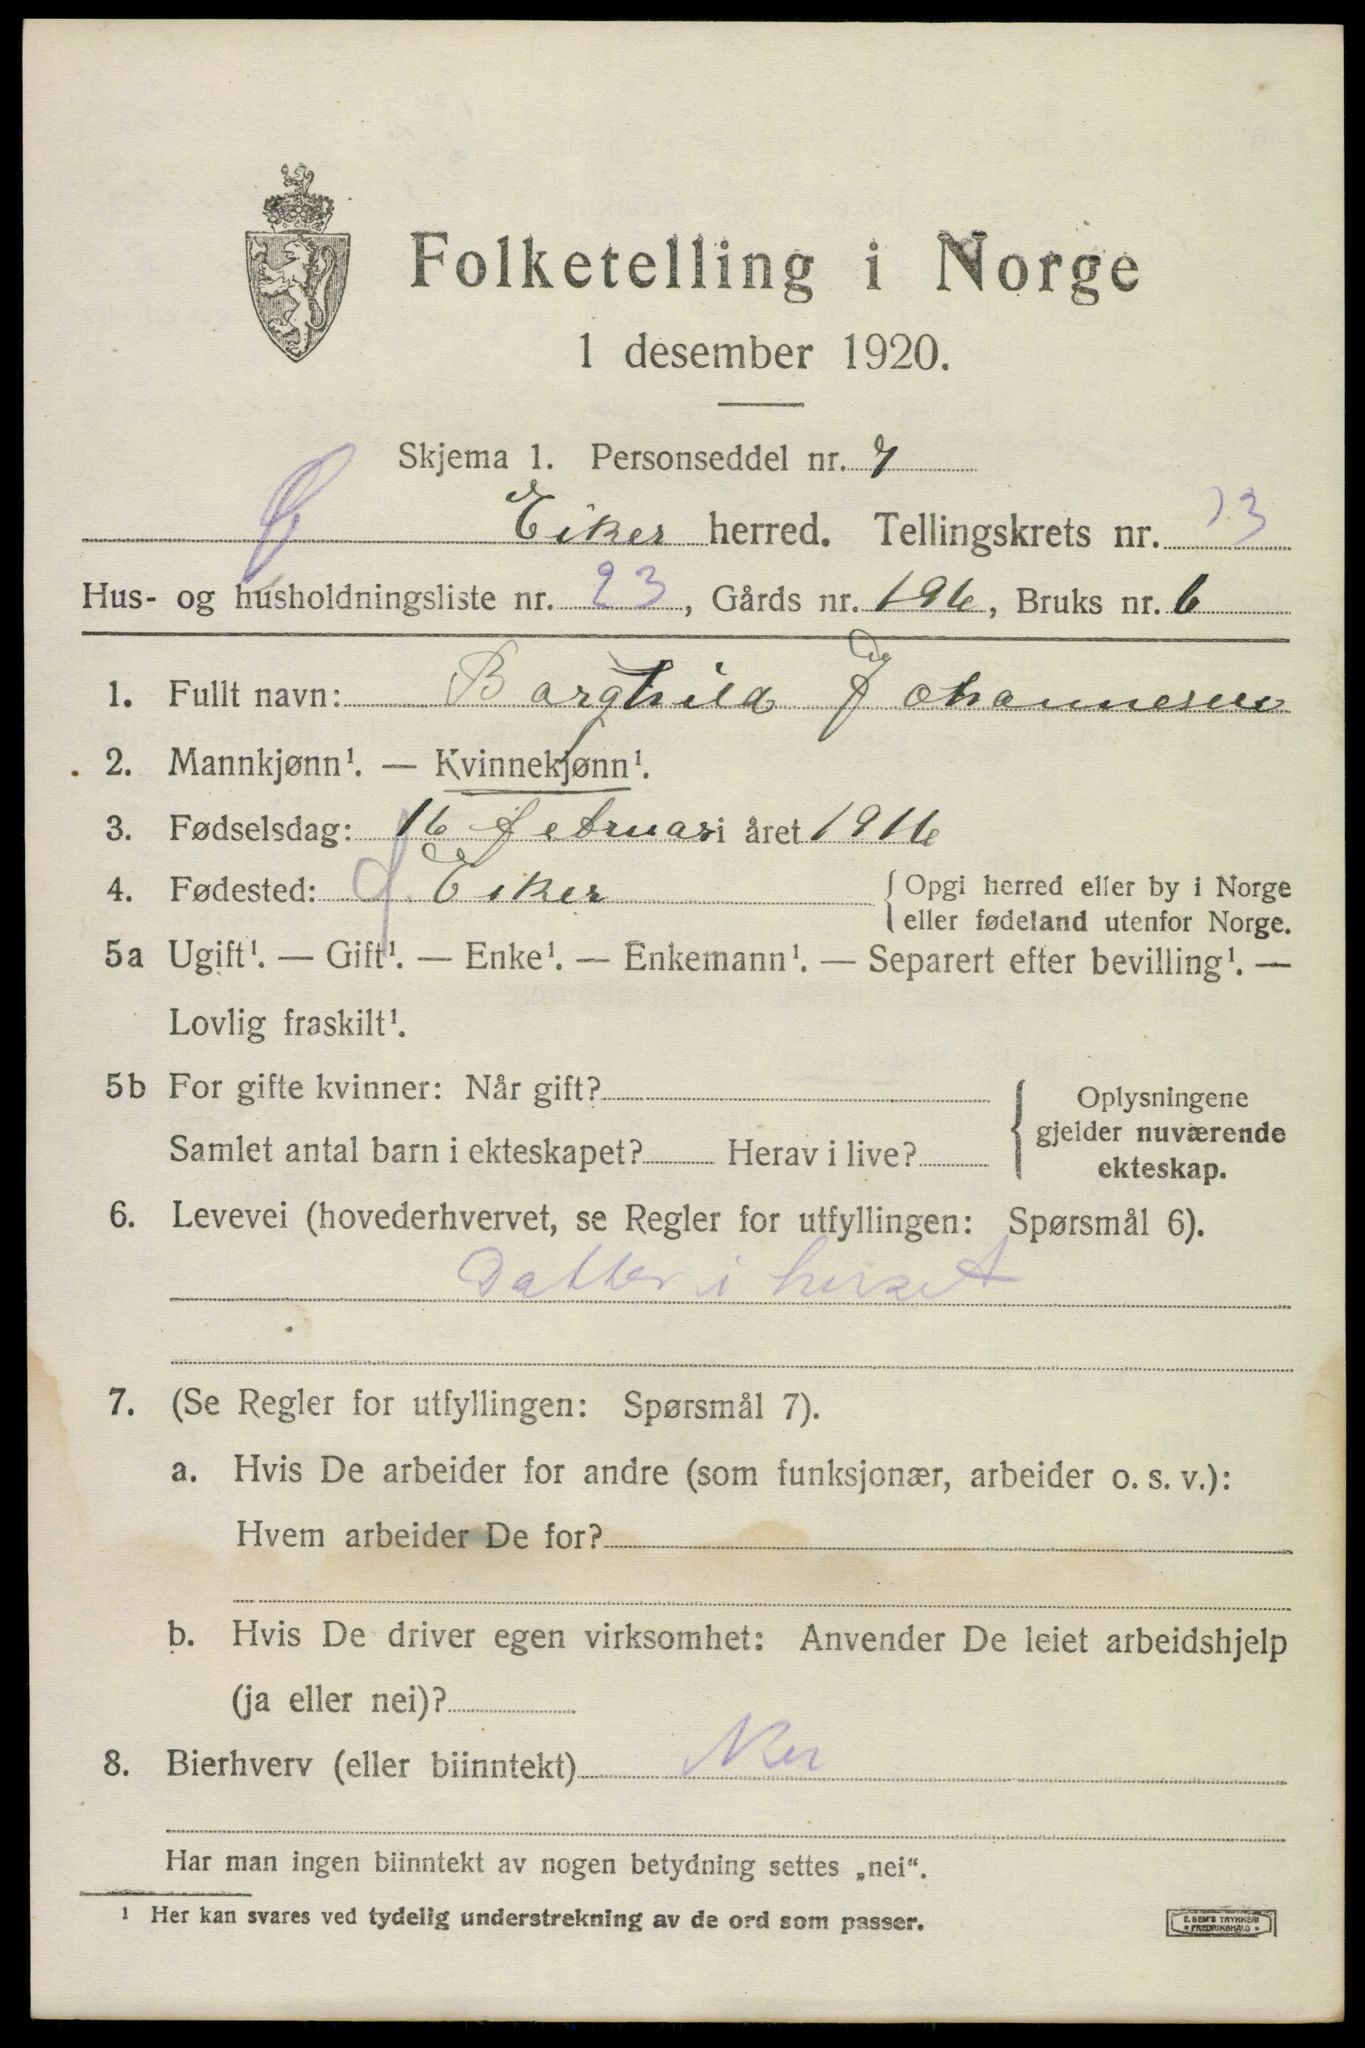 Folketelling i Norge
1 desember 1920.
Skjema 1. Personseddel nr. 7
Ø Eiker herred. Tellingskrets nr. 13
Hus- og husholdningsliste nr. 23, Gårds nr. 196, Bruks nr. 6
1. Fullt navn: Borghild Johannesen
2. Mannkjønn¹. — Kvinnekjønn¹.
3. Fødselsdag: 16 februar i året 1916
4. Fødested: Ø Eiker { Opgi herred eller by i Norge
eller fødeland utenfor Norge.
5a Ugift¹. — Gift¹. — Enke¹. — Enkemann¹. — Separert efter bevilling¹. —
Lovlig fraskilt¹.
5b For gifte kvinner: Når gift?
Samlet antal barn i ekteskapet? Herav i live?
{ Oplysningene
gjelder nuværende
ekteskap.
6. Levevei (hovederhvervet, se Regler for utfyllingen: Spørsmål 6).
Datter i huset
7. (Se Regler for utfyllingen: Spørsmål 7).
a. Hvis De arbeider for andre (som funksjonær, arbeider o. s. v.):
Hvem arbeider De for?
b. Hvis De driver egen virksomhet: Anvender De leiet arbeidshjelp
(ja eller nei)?
8. Bierhverv (eller biinntekt) Nei
Har man ingen biinntekt av nogen betydning settes „nei“.
¹ Her kan svares ved tydelig understrekning av de ord som passer.
E. SEM'S TRYKKERI
FREDRIKSHALD